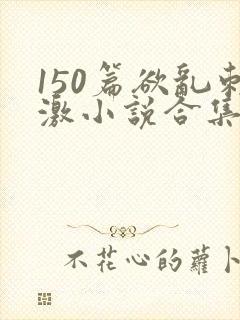 150篇欲乱刺
激小说合集
不花心的蘿卜